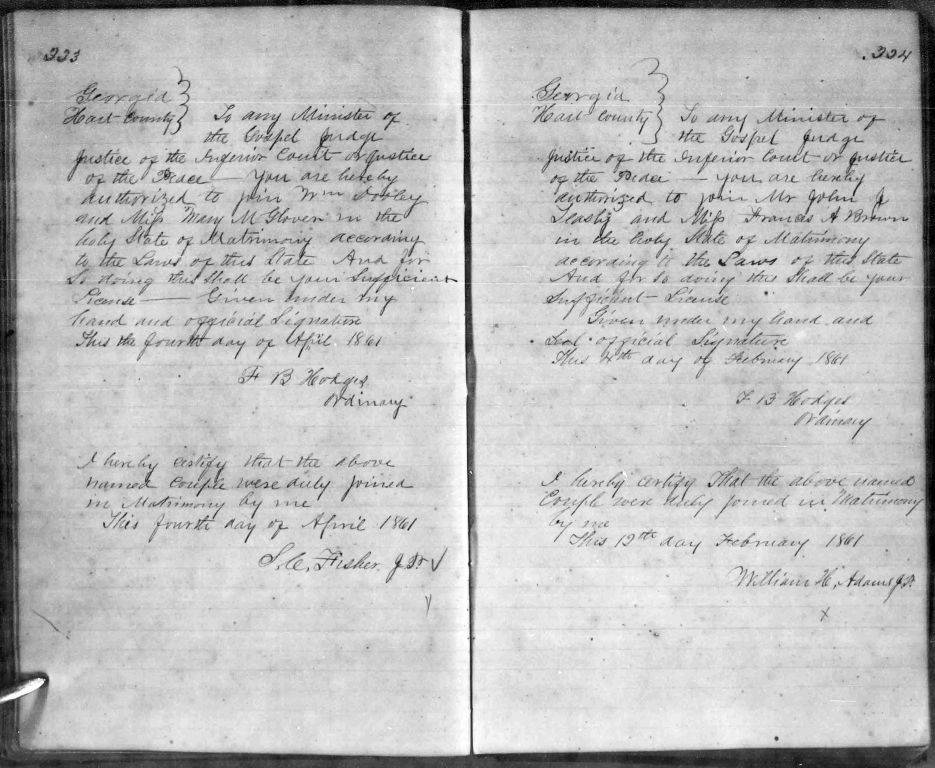 333
Georgia
Hart County
To any Minister of
the Gospel Judge
Justice of the Inferior Court or Justice
of the Peace — You are hereby
authorized to join Wm Dooley
and Miss Mary M Glover in the
holy State of Matrimony according
to the Laws of this State And for
So doing this Shall be your Sufficient
License — Given under my
hand and official Signature
This the fourth day of April 1861
F B Hodges
Ordinary
I hereby certify that the above
named Couple were duly joined
in Matrimony by me
This fourth day of April 1861
S. C. Fisher J P
334
Georgia
Hart County
To any Minister of
the Gospel Judge
Justice of the Inferior Court or Justice
of the Peace — You are hereby
authorized to join Mr John J
and Miss Francis A Brown
in the holy State of Matrimony
according to the Laws of this State
And for so doing this Shall be your
Sufficient License
Given under my hand and
official Signature
This 4th day of February 1861
F B Hodges
Ordinary
I hereby certify That the above named
Couple were duly joined in Matrimony
by me
This day February 1861
William H, Adams J P
x